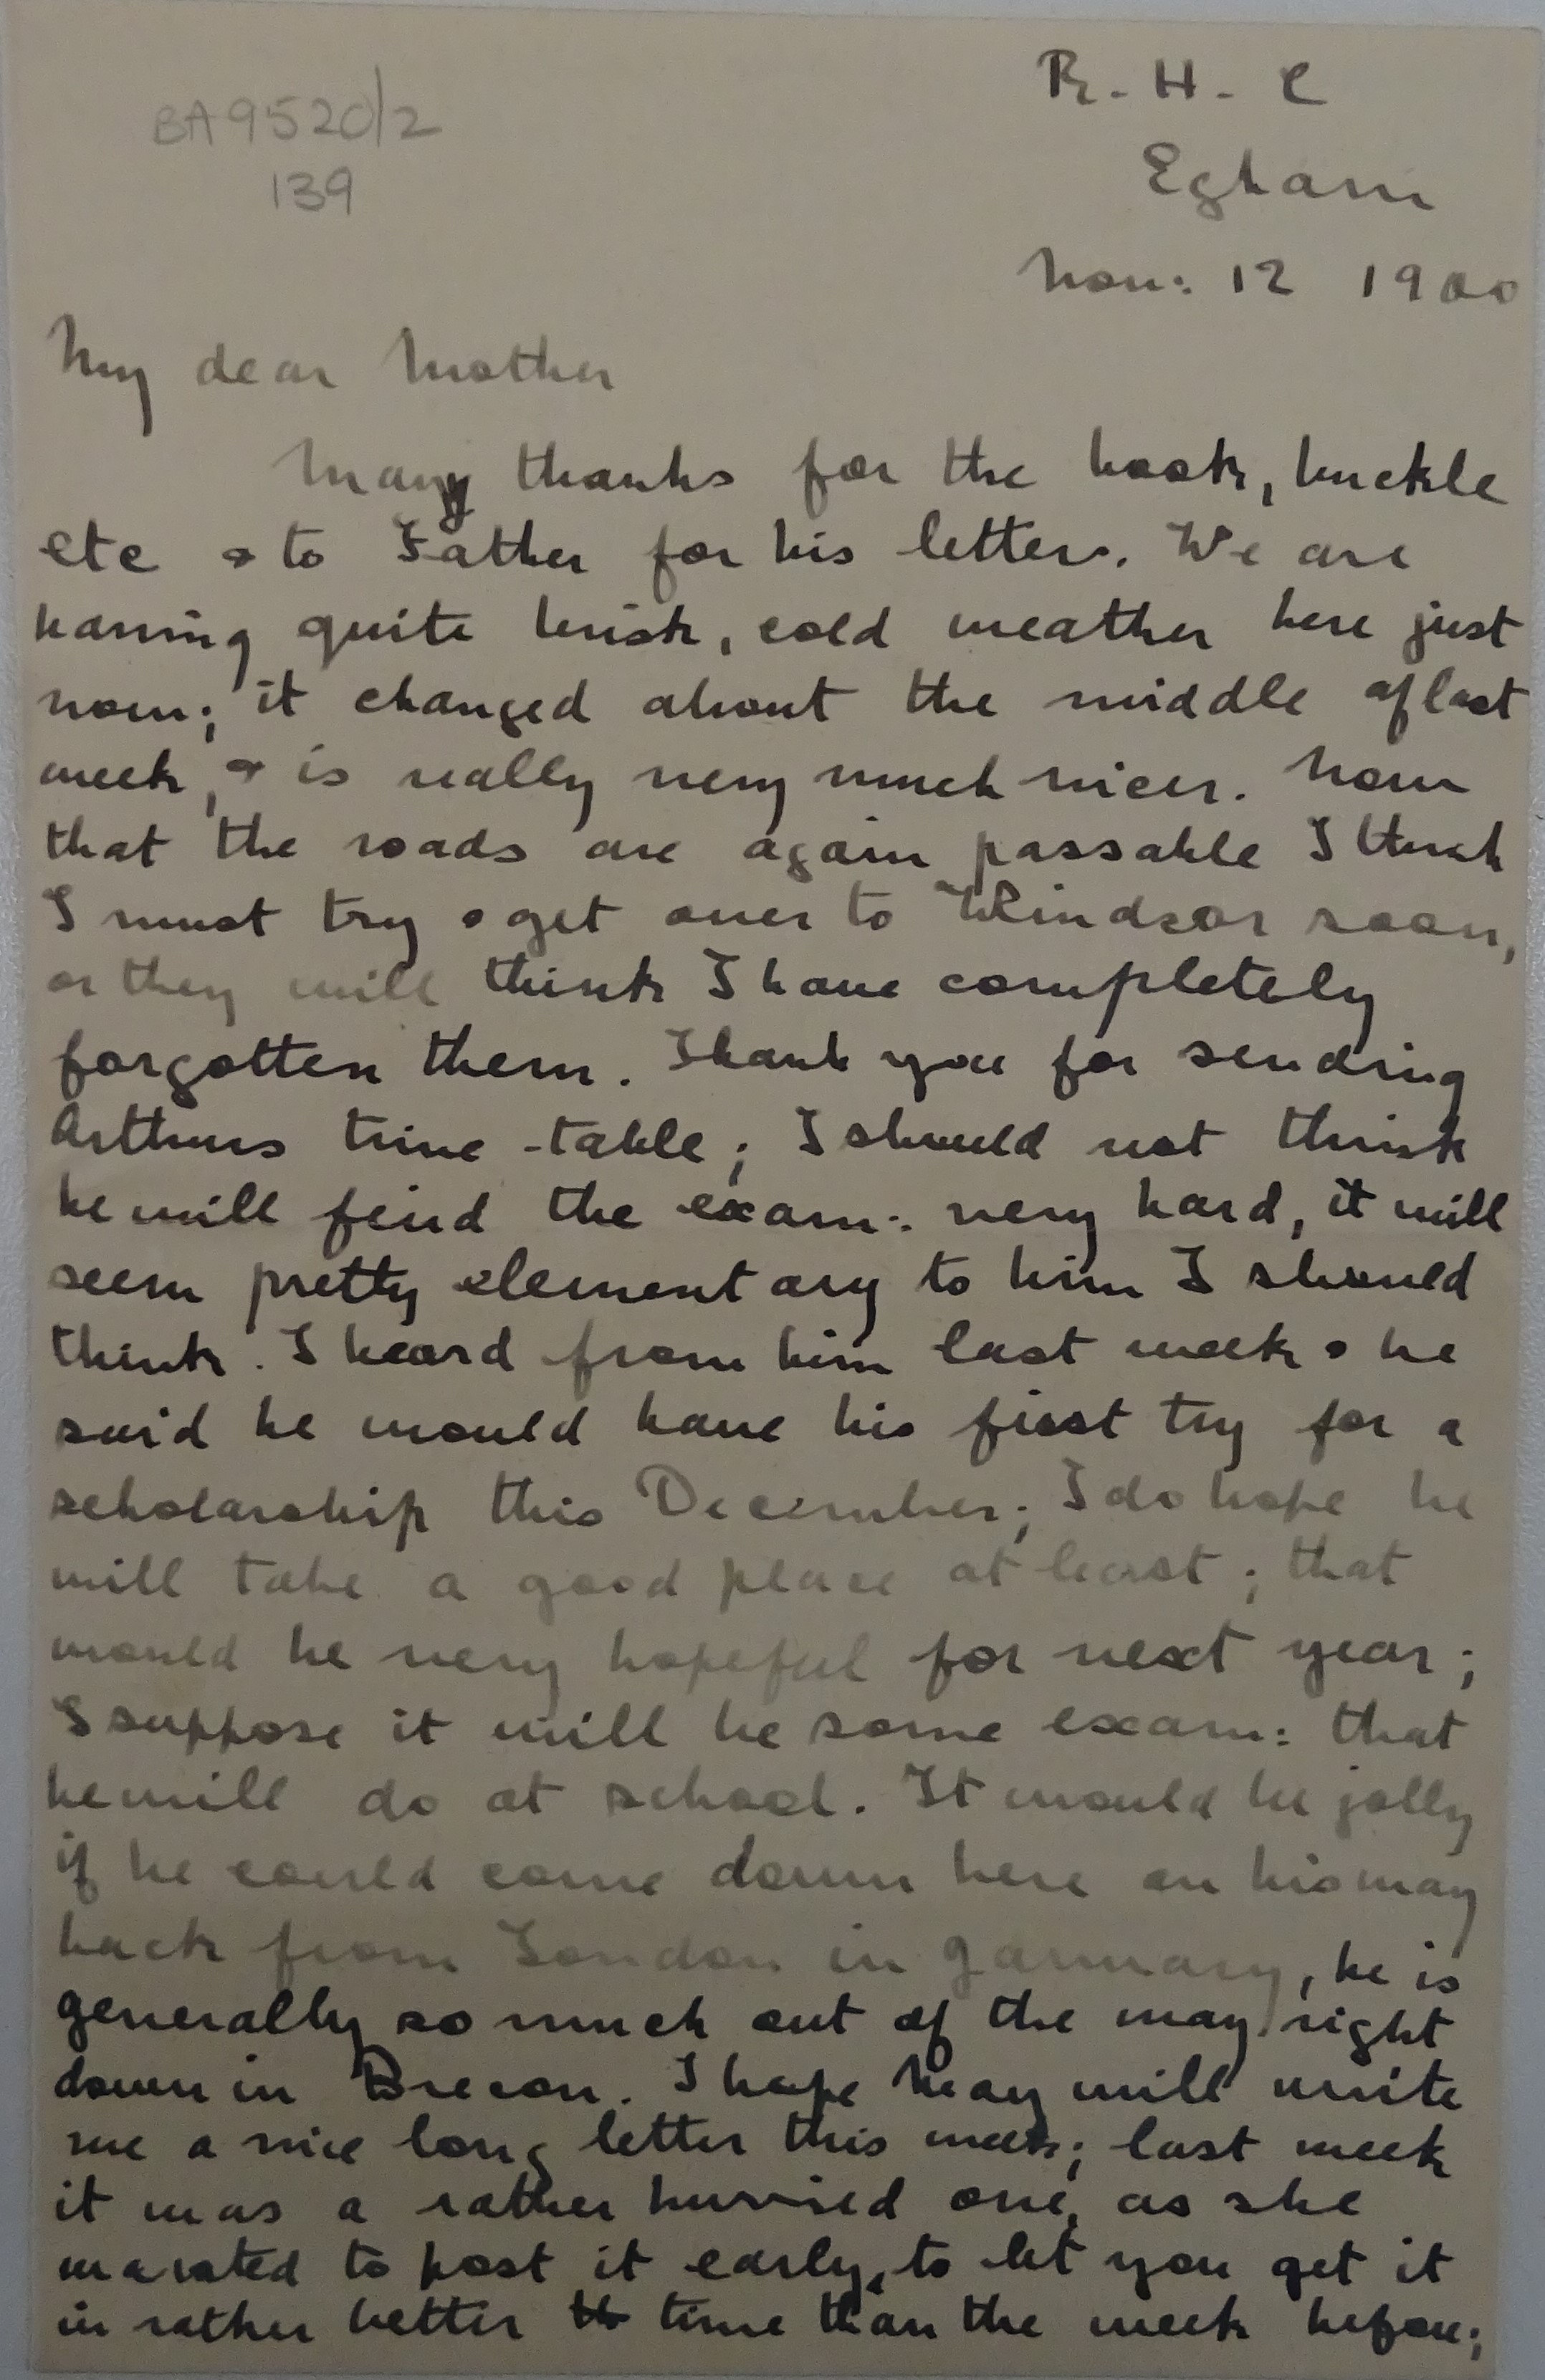 BA9520/2
139
R. H. C
Egham
Nov: 12 1900
My dear Mother
Many thanks for the book, buckle
etc & to Father for his letter. We are
having quite brisk, cold weather here just
now; it changed about the middle of last
week, & is really very much nicer. Now
that the roads are again passable I think
I must try & get over to Windsor soon,
or they will think I have completely
forgotten them. Thank you for sending
Arthurs time-table; I should not think
he will find the exam: very hard, it will
seem pretty elementary to him I should
think. I heard from him last week & he
said he would have his first try for a
scholarship this December; I do hope he
will take a good place at least; that
would be very hopeful for next year;
I suppose it will be some exam: that
he will do at school. It would be jolly
if he could come down here on his way
back from London in January, he is
generally so much out of the way right
down in Brecon. I hope May will write
me a nice long letter this week; last week
it was a rather hurried one, as she
wanted to post it early, to let you get it
in rather better time than the week before;